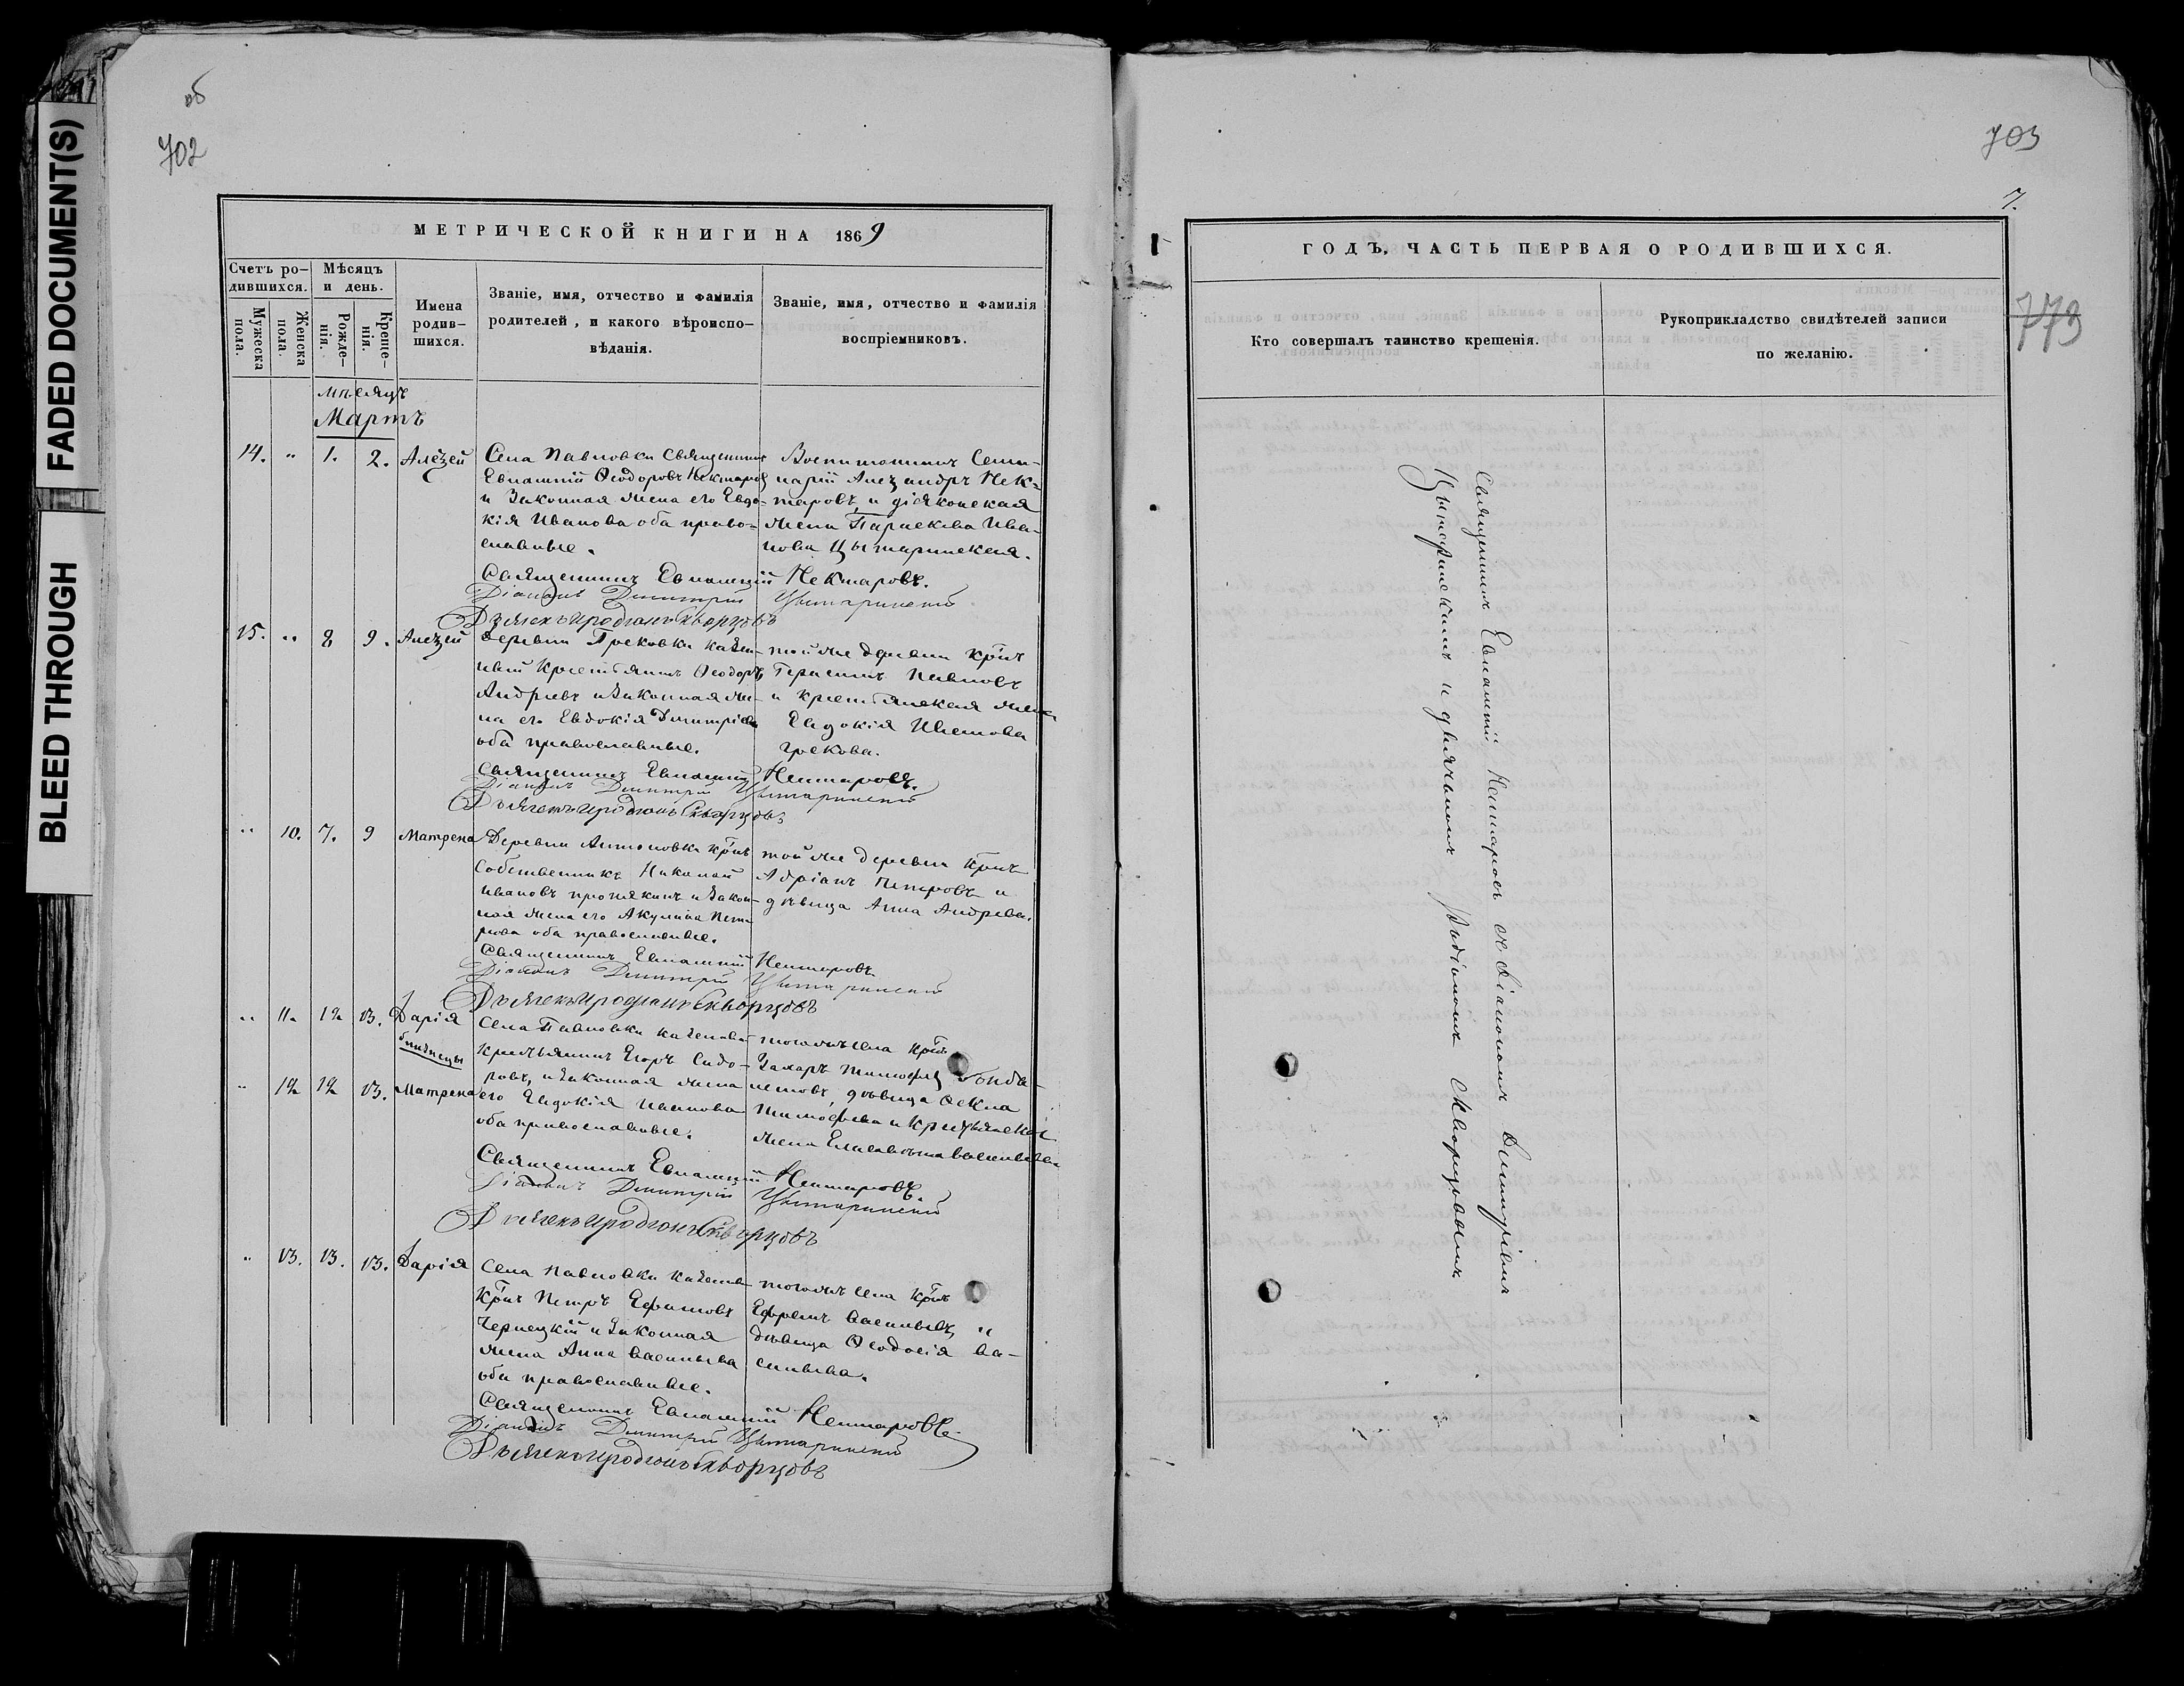 FADED DOCUMENT(S)
BLEED THROUGH
об
702
МЕТРИЧЕСКОЙ КНИГИ НА 1869
Счетъ ро-
дившихся.
Мужеска
пола.
Женска
пола.
Мѣсяцъ
и день.
Рожде-
нія.
Креще-
нія.
Имена
родив-
шихся.
Званіе, имя, отчество и фамилія
родителей, и какого вѣроиспо-
вѣданія.
Званіе, имя, отчество и фамилія
воспріемниковъ.
мѣсяцъ
Мартъ
14. " 1. 2. Алеѯей
Села Павловки Священникъ
Евпатій Ѳеодоровъ Нектаровъ
и Законная жена его Евдо-
кія Иванова оба право-
славные.
Воспитанникъ Семи-
наріи Алеѯандръ Нек-
таровъ, и діаконская
жена Параскева Ива-
нова Цытаринская.
Священникъ Евпатій Нектаровъ.
Діаконъ Димитрій Цытаринскій
Дьячекъ Иродіонъ Скворцовъ
15. " 8 9. Алеѯей
деревни Грековки казен-
ный Крестьянинъ Ѳеодоръ
Андреевъ и Законная же-
на его Евдокія Димитріева
оба православные.
той же деревни кр̃нъ
Герасимъ Павловъ
и крестьянская жена
Евдокія Изотова
Грекова.
Священникъ Евпатій Нектаровъ.
Діаконъ Димитрій Цытаринскій
Дьячекъ Иродіонъ Скворцовъ
" 10. 7. 9 Матрена
Деревни Антоновки кр̃нъ
Собственникъ Николай
Ивановъ пронякинъ и Закон-
ная жена его Акулина Пет-
рова оба православные.
той же деревни Кр̃нъ
Адріанъ Петровъ и
дѣвица Анна Андреева.
Священникъ Евпатій Нектаровъ
Діаконъ Димитрій Цытаринскій
Дьячекъ Иродіонъ Скворцовъ
" 11. 12 13. Дарія
близнецы
" 12 12 13. Матрена
Села Павловки казенный
Крестьянинъ Егоръ Сидо-
ровъ, и Законная жена
его Евдокія Иванова
оба православные.
тогожъ села кр̃нъ
Захаръ Тимофеевъ
дѣвица Ѳекла
Тимофеева и Крестьянская
жена Елисавета Васильева
Священникъ Евпатій Нектаровъ.
Діаконъ Димитрій Цытаринскій
Дьячекъ Иродіонъ Скворцовъ
" 13. 13. 13. Дарія
Села Павловки казенный
Кр̃нъ Петръ Ефимовъ
Чернецкій и Законная
жена Анна Васильева
оба православные.
тогожъ села кр̃нъ
Ефремъ Васильевъ, и
дѣвица Ѳеодосія Ва-
сильева.
Священникъ Евпатій Нектаровъ.
Діаконъ Димитрій Цытаринскій
Дьячекъ Иродіонъ Скворцовъ
703
7.
773
ГОДЪ, ЧАСТЬ ПЕРВАЯ О РОДИВШИХСЯ.
Кто совершалъ таинство крещенія.
Рукоприкладство свидѣтелей записи
по желанію.
Священникъ Евпатій Нектаровъ съ діакономъ Димитріемъ
Цытаринскимъ и дьячкомъ Иродіономъ Скворцовымъ